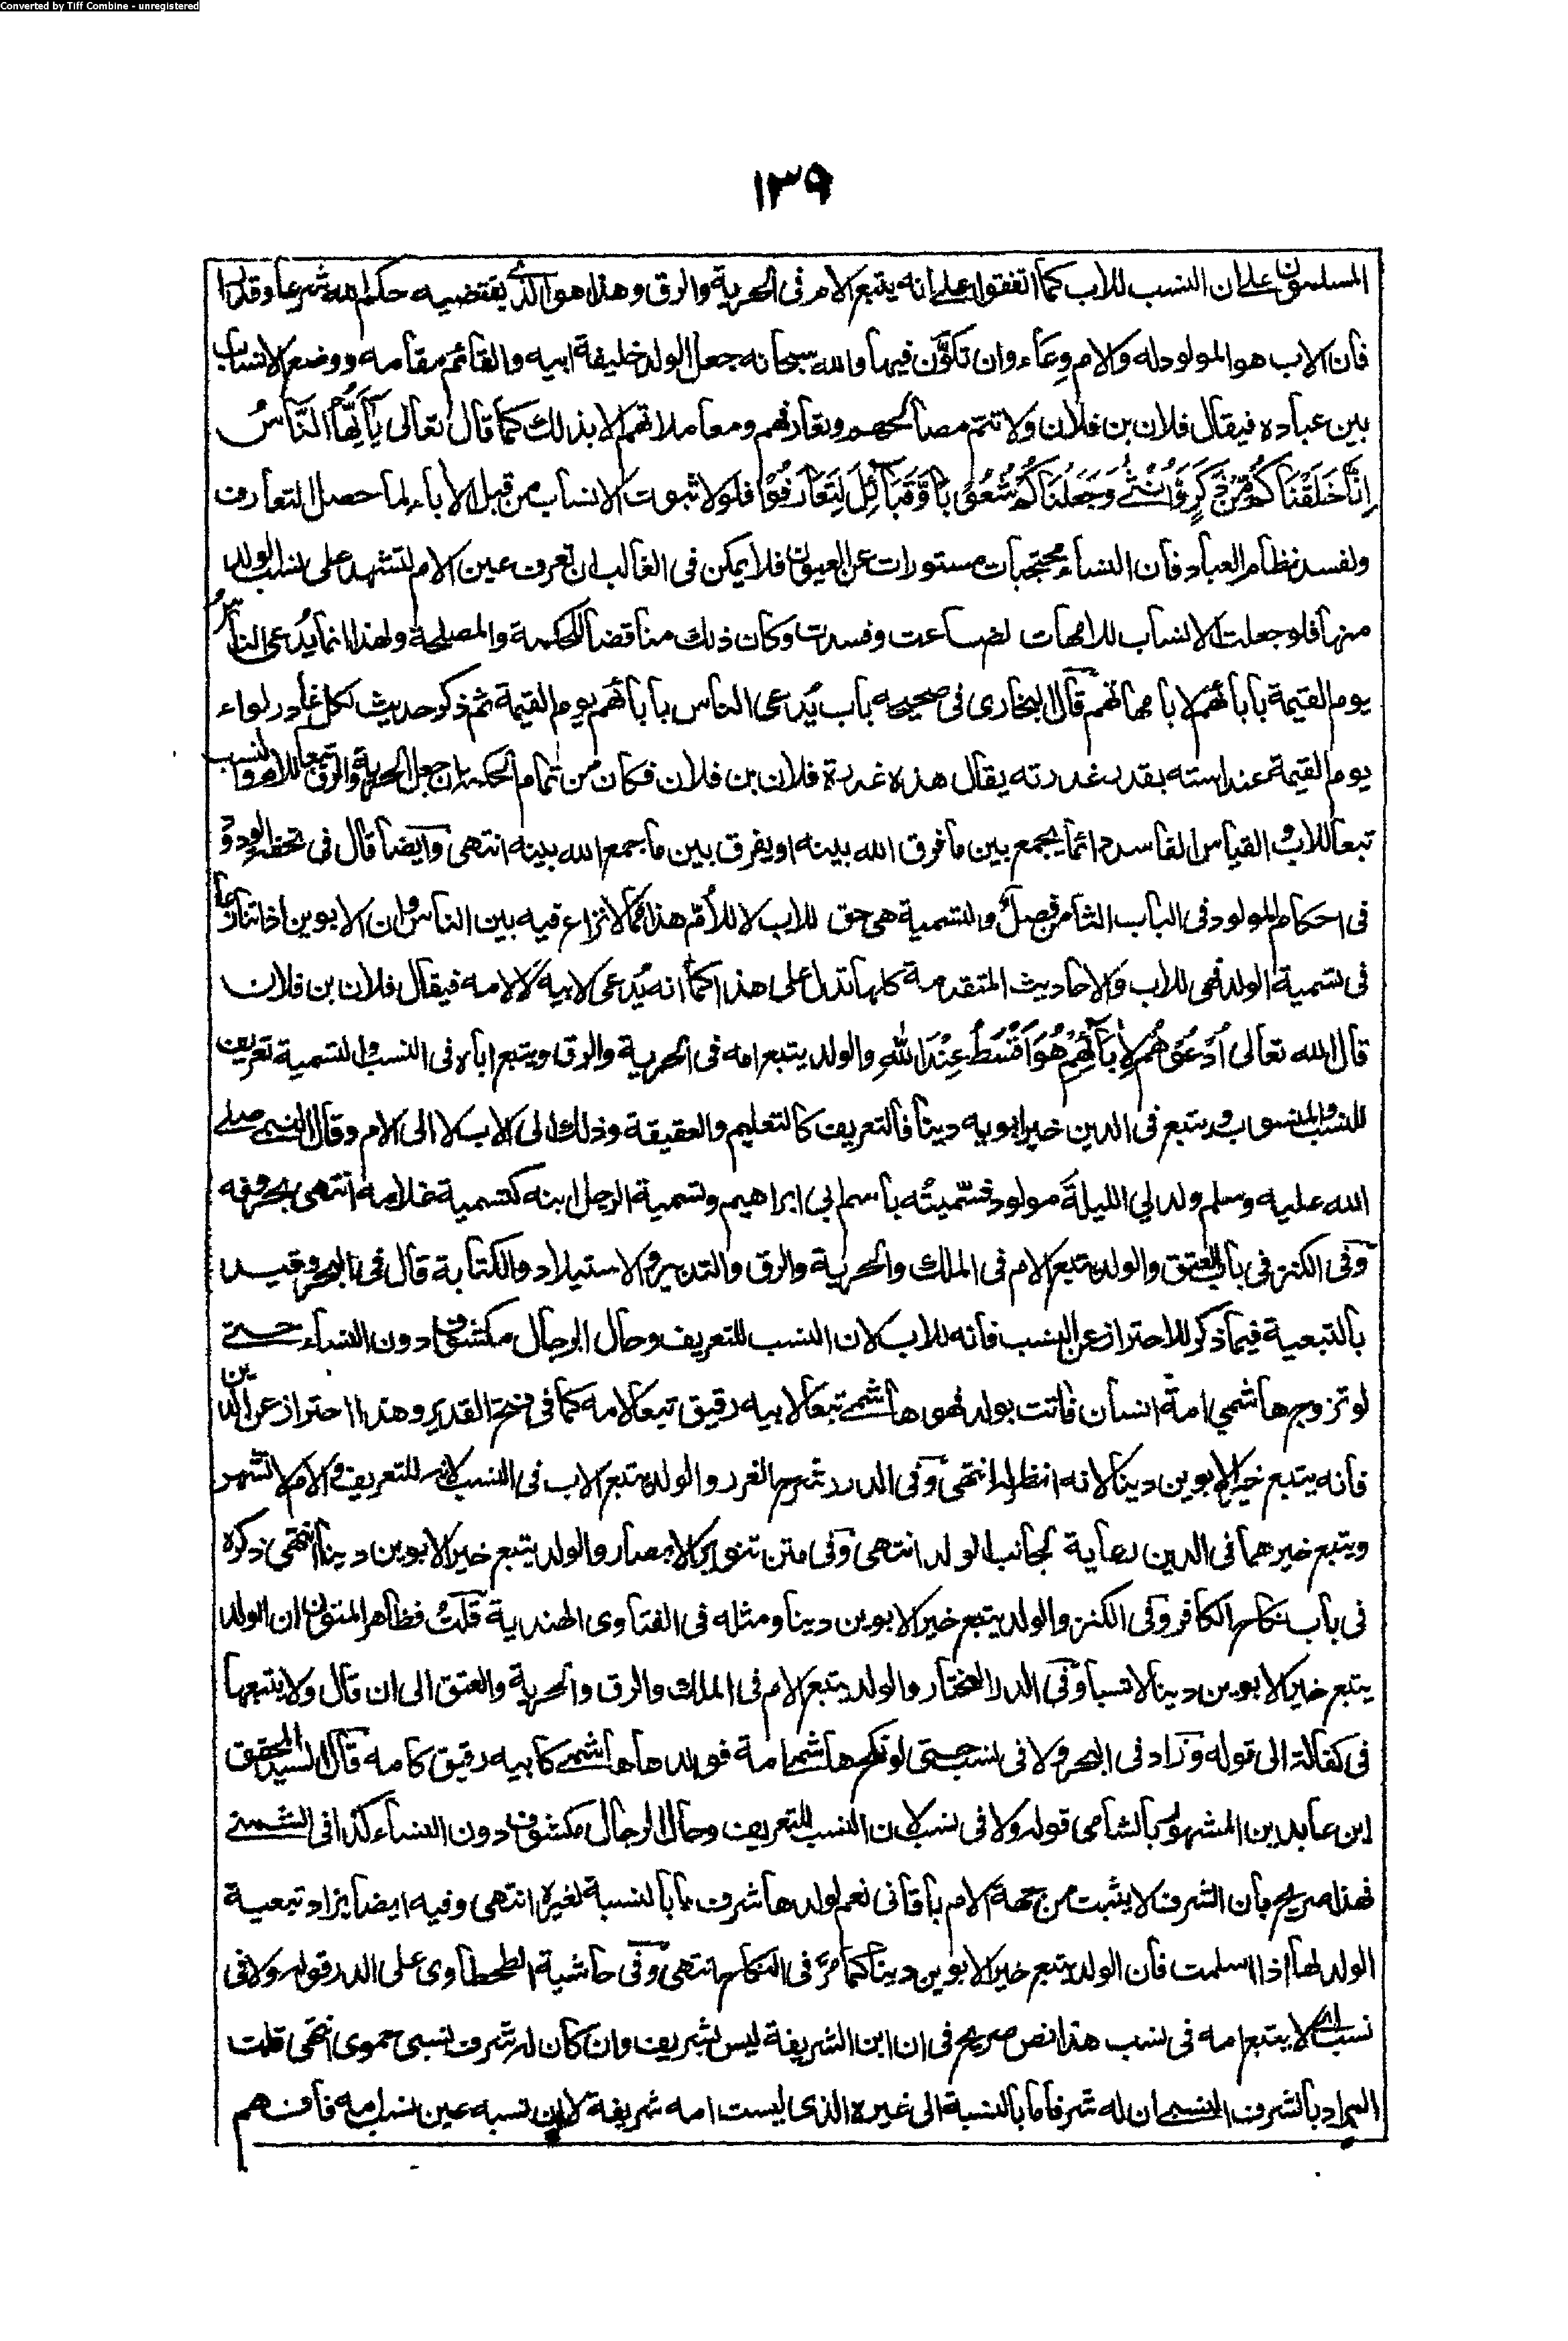 Converted by Tiff Combine - unregistered
١٣٩
المسلمون على ان النسب للاب كما اتفقوا على انه يتبع الام فى الحرية والرق وهذا هو الذى يقتضيه حكم الله شرعا وقدرا
فان الاب هو المولود له والام وعاء وان تكوّن فيها والله سبحانه جعل الولد خليفة ابيه والقائم مقامه ووضع الانساب
بين عباده فيقال فلان بن فلان ولا تتم مصالحهم وتعارفهم ومعاملاتهم الا بذلك كما قال تعالى يٰاَيُّهَا النَّاسُ
اِنَّا خَلَقْنَاكُمْ مِّنْ ذَكَرٍ وَّاُنْثٰى وَجَعَلْنَاكُمْ شُعُوْبًا وَّقَبَائِلَ لِتَعَارَفُوْا فلولا ثبوت الانساب من قبل الاباء لما حصل التعارف
ولفسد نظام العباد فان النساء محتجبات مستورات عن العيون فلا يمكن فى الغالب ان تعرف عين الام لتشهد على نسب الولد
منها فلو جعلت الانساب للامهات لضاعت وفسدت وكان ذلك مناقضا للحكمة والمصلحة ولهذا انما يُدعى الناسُ
يوم القيمة بابائهم لا بامهاتهم قال البخارى فى صحيحه باب يُدعى الناس بابائهم يوم القيمة ثم ذكر حديث لكل غادر لواء
يوم القيمة عند استه بقدر غدرته يقال هذه غدرة فلان بن فلان فكان من تمام الحكمة ان جعل الحرية والرق تبعا للام والنسب
تبعا للاب والقياس الفاسد دائما يجمع بين ما فرق الله بينه او يفرق بين ما جمع الله بينه انتهى وايضا قال فى تحفة الودود
فى احكام المولود فى الباب الثامن فصل والتسمية هى حق للاب لا للاُمّ هذا مما لا نزاع فيه بين الناس وان الابوين اذا تنازعا
فى تسمية الولد فهى للاب والاحاديث المتقدمة كلها تدل على هذا كما انه يُدعى لابيه لا لامه فيقال فلان بن فلان
قال الله تعالى اُدْعُوْهُمْ لِاٰبَآئِهِمْ هُوَ اَقْسَطُ عِنْدَ اللهِ والولد يتبع امه فى الحرية والرق ويتبع اباه فى النسب والتسمية تعريف
للنسب والمنسوب ويتبع فى الدين خير ابويه دينا فالتعريف كالتعليم والعقيقة وذلك الى الاب لا الى الام وقال النبى صلى
الله عليه وسلم ولد لي الليلةَ مولود فسّميتُه باسم ابي ابراهيم وتسمية الرجل ابنه كتسمية غلامه انتهى بحروفه
وفى الكنز فى باب العتق والولد يتبع الام فى الملك والحرية والرق والتدبير والاستيلاد والكتابة قال فى البحر وقيد
بالتبعية فيما ذكر للاحتراز عن النسب فانه للاب لان النسب للتعريف وحال الرجال مكشوف دون النساء حتى
لو تزوج هاشمي امةَ انسان فاتت بولد فهو هاشمى تبعا لابيه رقيق تبعا لامه كما فى فتح القدير وهذا احتراز عن الدين
فانه يتبع خير الابوين دينا لانه انظر له انتهى وفى الدرر شرح الغرر والولد يتبع الاب فى النسب لانه للتعريف والام لا تشهر
ويتبع خيرهما فى الدين رعاية لجانب الولد انتهى وفى متن تنوير الابصار والولد يتبع خير الابوين دينا انتهى ذكره
فى باب نكاح الكافر وفى الكنز والولد يتبع خير الابوين دينا ومثله فى الفتاوى الهندية قلتُ فظاهر المتون ان الولد
يتبع خير الابوين دينا لا نسبا وفى الدر المختار والولد يتبع الام فى الملك والرق والحرية والعتق الى ان قال ولا يتبعها
فى كفالة الى قوله وزاد فى البحر ولا فى نسب حتى لو نكح هاشمى امة فولدها هاشمى كابيه رقيق كامه قال السيد المحقق
ابن عابدين المشهور بالشامى قوله ولا فى نسب لان النسب للتعريف وحال الرجال مكشوف دون النساء كذا فى الشمنى
فهذا صريح بان الشرف لا يثبت من جهة الام باقانى نعم لولدها شرف ما بالنسبة لغيره انتهى وفيه ايضا يزاد تبعية
الولد لها اذا اسلمت فان الولد يتبع خير الابوين دينا كما مرَّ فى النكاح انتهى وفى حاشية الطحطاوى على الدر قوله ولا فى
نسب اى لا يتبع امه فى نسب هذا نص صريح فى ان ابن الشريفة ليس بشريف وان كان له شرف نسبى حموى انتهى قلت
المراد بالشرف النسبى ان له شرفا ما بالنسبة الى غيره الذى ليست امه شريفة لا ان نسبه عين نسب امه فافهم